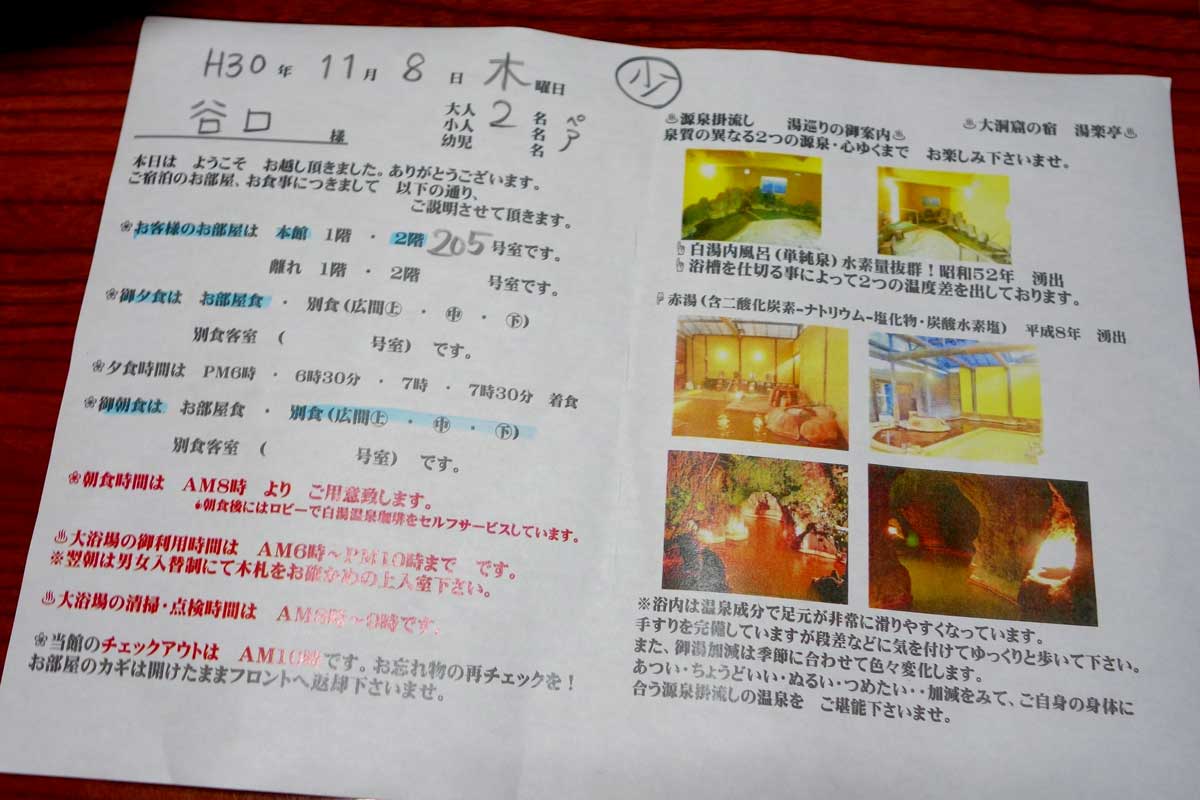 H30年 11月 8日 木曜日
谷口 様
大人 2 名 ペア
小人 名
幼児 名
本日は ようこそ お越し頂きました。ありがとうございます。
ご宿泊のお部屋、お食事につきまして 以下の通り、
ご説明させて頂きます。
❀お客様のお部屋は 本館 1階 ・ 2階 205号室です。
離れ 1階 ・ 2階 号室です。
❀御夕食は お部屋食 ・ 別食(広間㊤ ・ ㊥ ・ ㊦)
別食客室 ( 号室) です。
❀夕食時間は PM6時 ・ 6時30分 ・ 7時 ・ 7時30分 着食
❀御朝食は お部屋食 ・ 別食(広間㊤ ・ ㊥ ・ ㊦)
別食客室 ( 号室) です。
❀朝食時間は AM8時 より ご用意致します。
朝食後にはロビーで白湯温泉珈琲をセルフサービスしています。
♨大浴場の御利用時間は AM6時～PM10時まで です。
※翌朝は男女入替制にて木札をお確かめの上入室下さい。
♨大浴場の清掃・点検時間は AM8時～9時です。
❀当館のチェックアウトは AM10時です。お忘れ物の再チェックを！
お部屋のカギは開けたままフロントへ返却下さいませ。
少
♨源泉掛流し 湯巡りの御案内♨ ♨大洞窟の宿 湯楽亭♨
泉質の異なる2つの源泉・心ゆくまで お楽しみ下さいませ。
☝白湯内風呂(単純泉)水素量抜群！昭和52年 湧出
☝浴槽を仕切る事によって2つの温度差を出しております。
☟赤湯(含二酸化炭素-ナトリウム-塩化物・炭酸水素塩) 平成8年 湧出
※浴内は温泉成分で足元が非常に滑りやすくなっています。
手すりを完備していますが段差などに気を付けてゆっくりと歩いて下さい。
また、御湯加減は季節に合わせて色々変化します。
あつい・ちょうどいい・ぬるい・つめたい・・加減をみて、ご自身の身体に
合う源泉掛流しの温泉を ご堪能下さいませ。